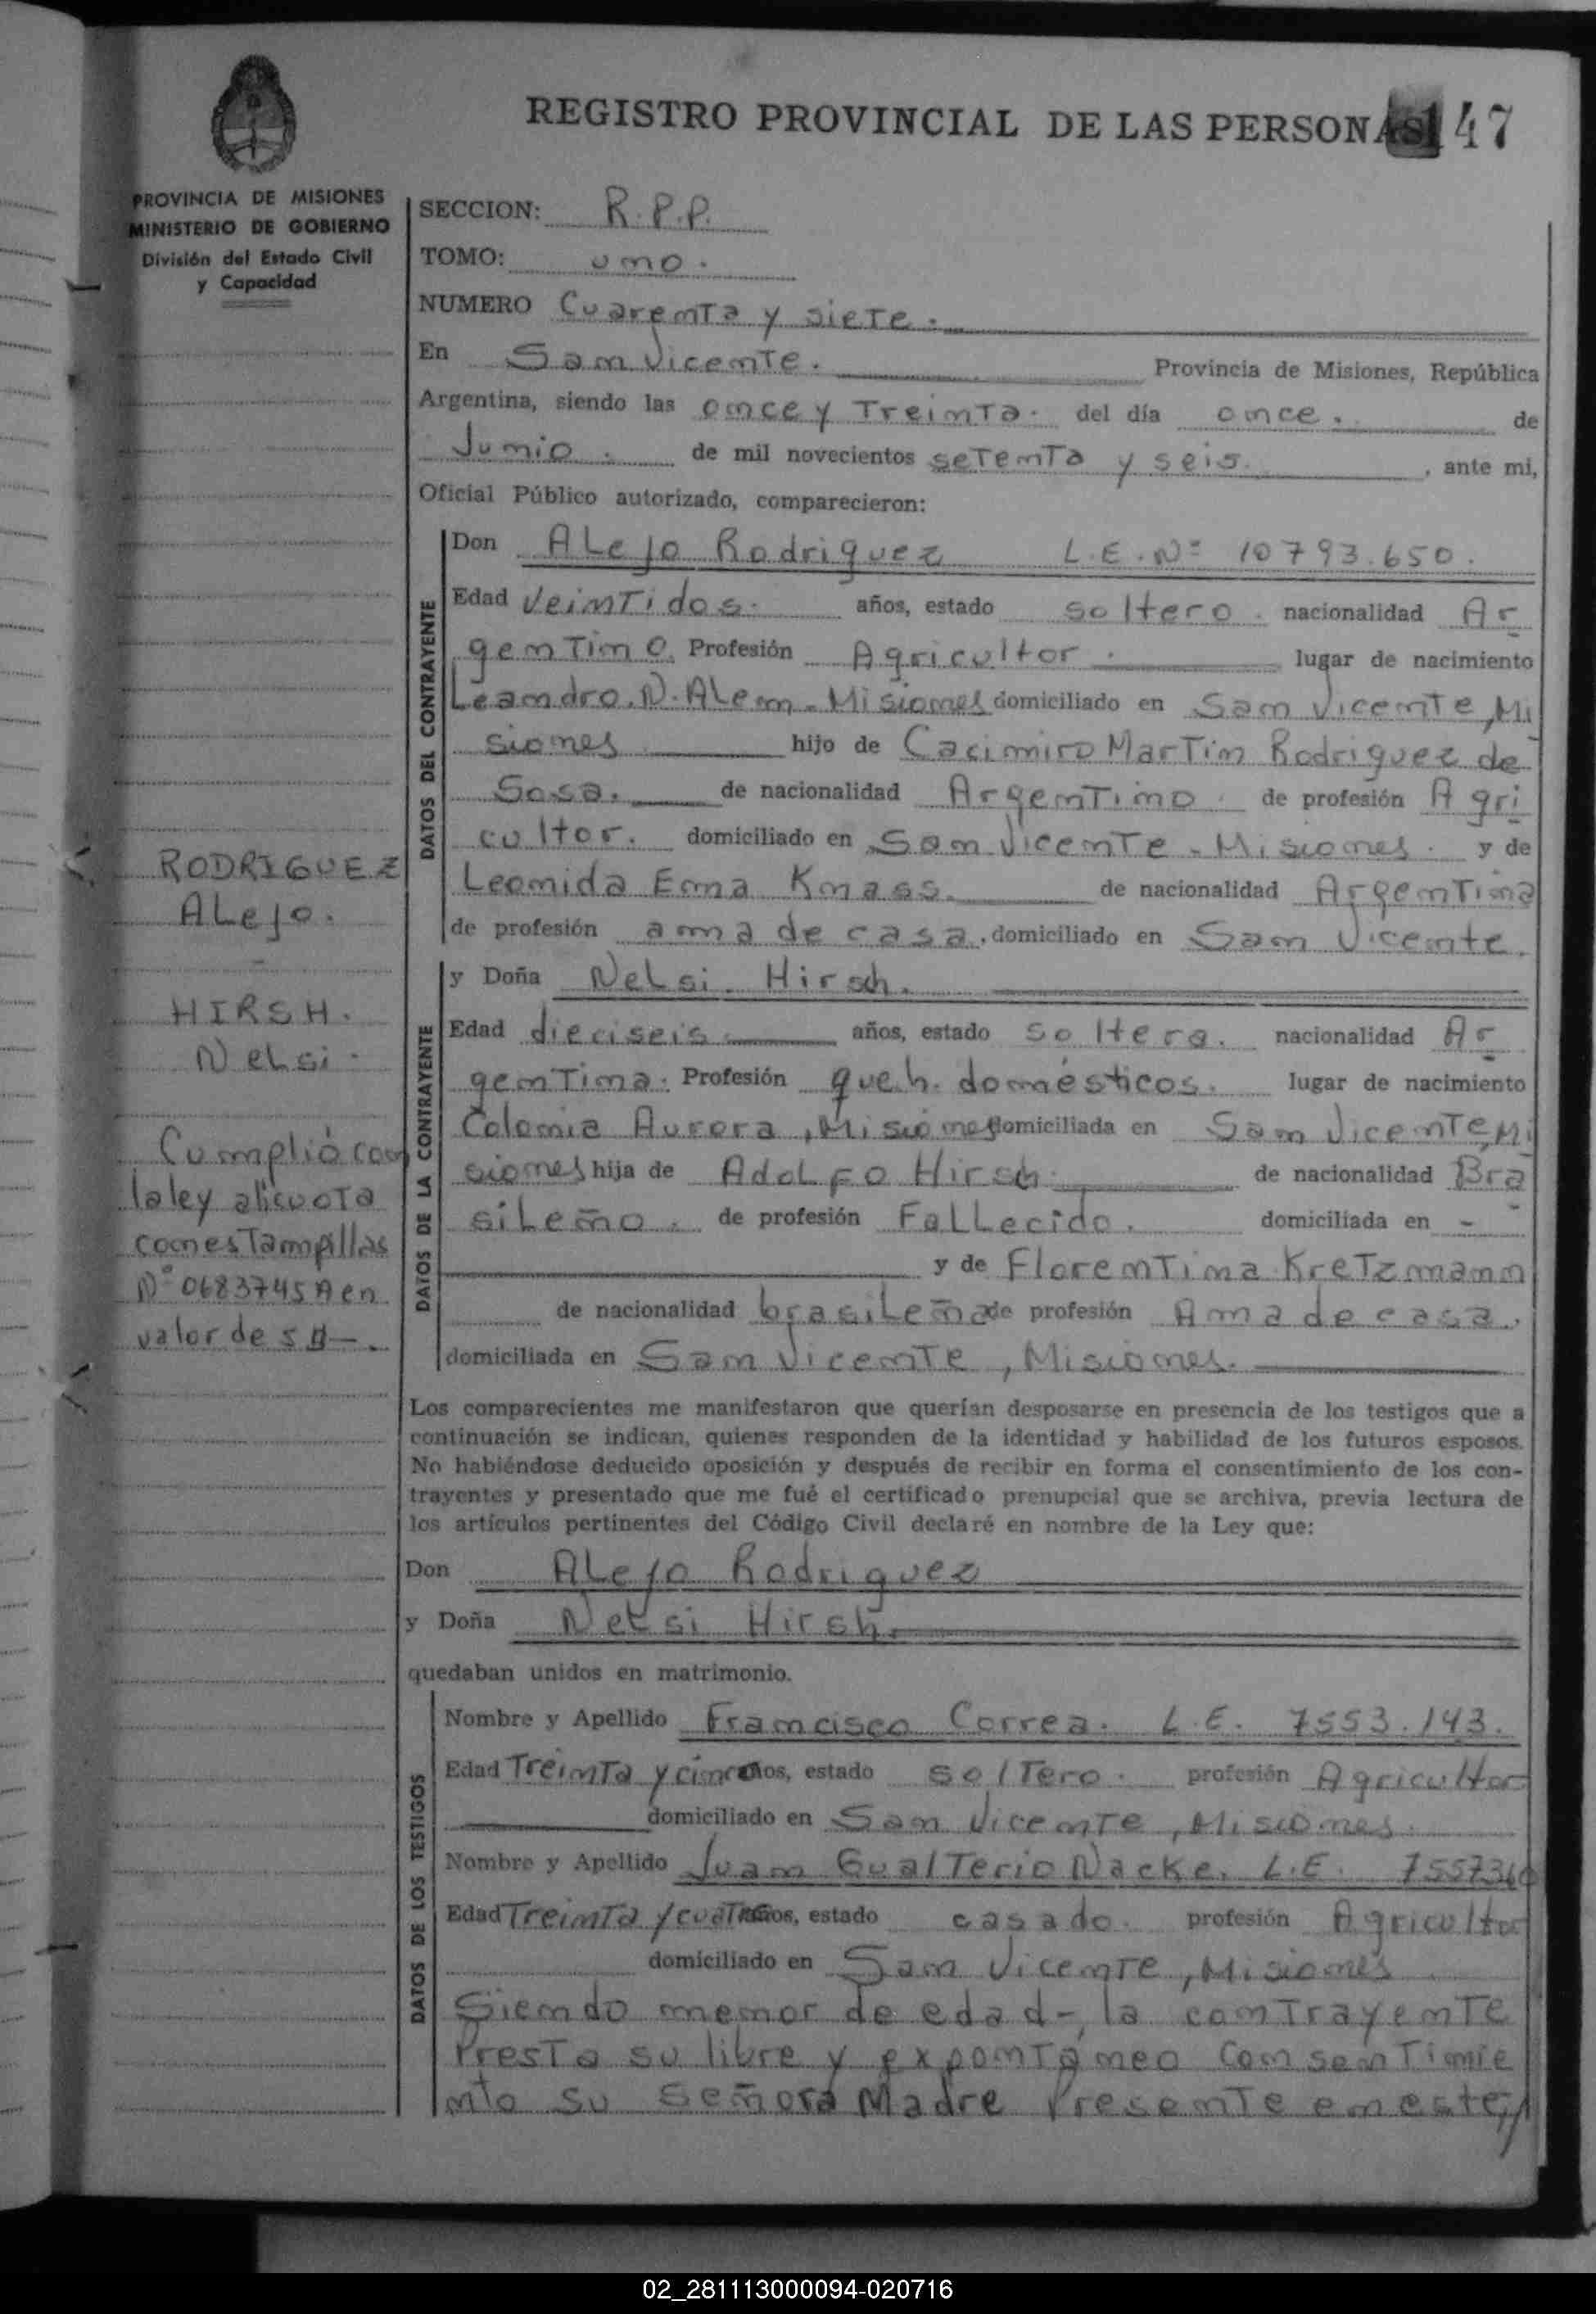 REGISTRO PROVINCIAL DE LAS PERSONAS 47
PROVINCIA DE MISIONES
MINISTERIO DE GOBIERNO
División del Estado Civil
y Capacidad
SECCION: R.P.P.
TOMO: uno.
NUMERO Cuarenta y siete.
En San Vicente. Provincia de Misiones, República
Argentina, siendo las once y Treinta. del día once. de
Junio. de mil novecientos seTenTa y seis. , ante mi,
Oficial Público autorizado, comparecieron:
DATOS DEL CONTRAYENTE
Don ALejo Rodriguez L.E.Nº 10793.650.
Edad VeinTidos. años, estado soltero. nacionalidad Ar
genTino. Profesión Agricultor. lugar de nacimiento
Leandro.N.ALem-Misiones domiciliado en San Vicente, Mi
siones hijo de Cacimiro MarTin Rodriguez de
Sosa. de nacionalidad ArgenTino. de profesión Agri
cultor. domiciliado en San Vicente-Misiones. y de
Leonida Ema Knass. de nacionalidad ArgenTina
de profesión ama de casa. domiciliado en San Vicente.
DATOS DE LA CONTRAYENTE
y Doña NeLsi. Hirsch.
Edad dieciseis. años, estado soltera. nacionalidad Ar
genTina. Profesión queh. domésticos. lugar de nacimiento
Colonia Aurora, Misiones domiciliada en San Vicente, Mi
siones hija de AdoLFo Hirsch. de nacionalidad Bra
siLeño. de profesión FaLLecido. domiciliada en --
y de FlorenTina KreTzmann
de nacionalidad brasiLeña de profesión Ama de casa.
domiciliada en San Vicente, Misiones.
Los comparecientes me manifestaron que querían desposarse en presencia de los testigos que a
continuación se indican, quienes responden de la identidad y habilidad de los futuros esposos.
No habiéndose deducido oposición y después de recibir en forma el consentimiento de los con-
trayentes y presentado que me fué el certificado prenupcial que se archiva, previa lectura de
los artículos pertinentes del Código Civil declaré en nombre de la Ley que:
Don ALejo Rodriguez
y Doña NeLsi Hirsh.
quedaban unidos en matrimonio.
DATOS DE LOS TESTIGOS
Nombre y Apellido Francisco Correa. L.E. 7553.143.
Edad TreinTa y cinco años, estado solTero. profesión Agricultor
domiciliado en San Vicente, Misiones.
Nombre y Apellido Juan GualTerio Nacke. L.E. 7557360
Edad TreinTa y cuaTro años, estado casado. profesión Agricultor
domiciliado en San Vicente, Misiones
Siendo menor de edad-, la conTrayenTe
PresTa su libre y exponTaneo ConsenTimie
nto su Señora Madre PresenTe en este,//
RODRIGUEZ
ALejo.
-
HIRSH.
NeLsi.
Cumplió con
la ley alicuoTa
con esTampillas
Nº 0683745A en
valor de 5 $-.
02_281113000094-020716